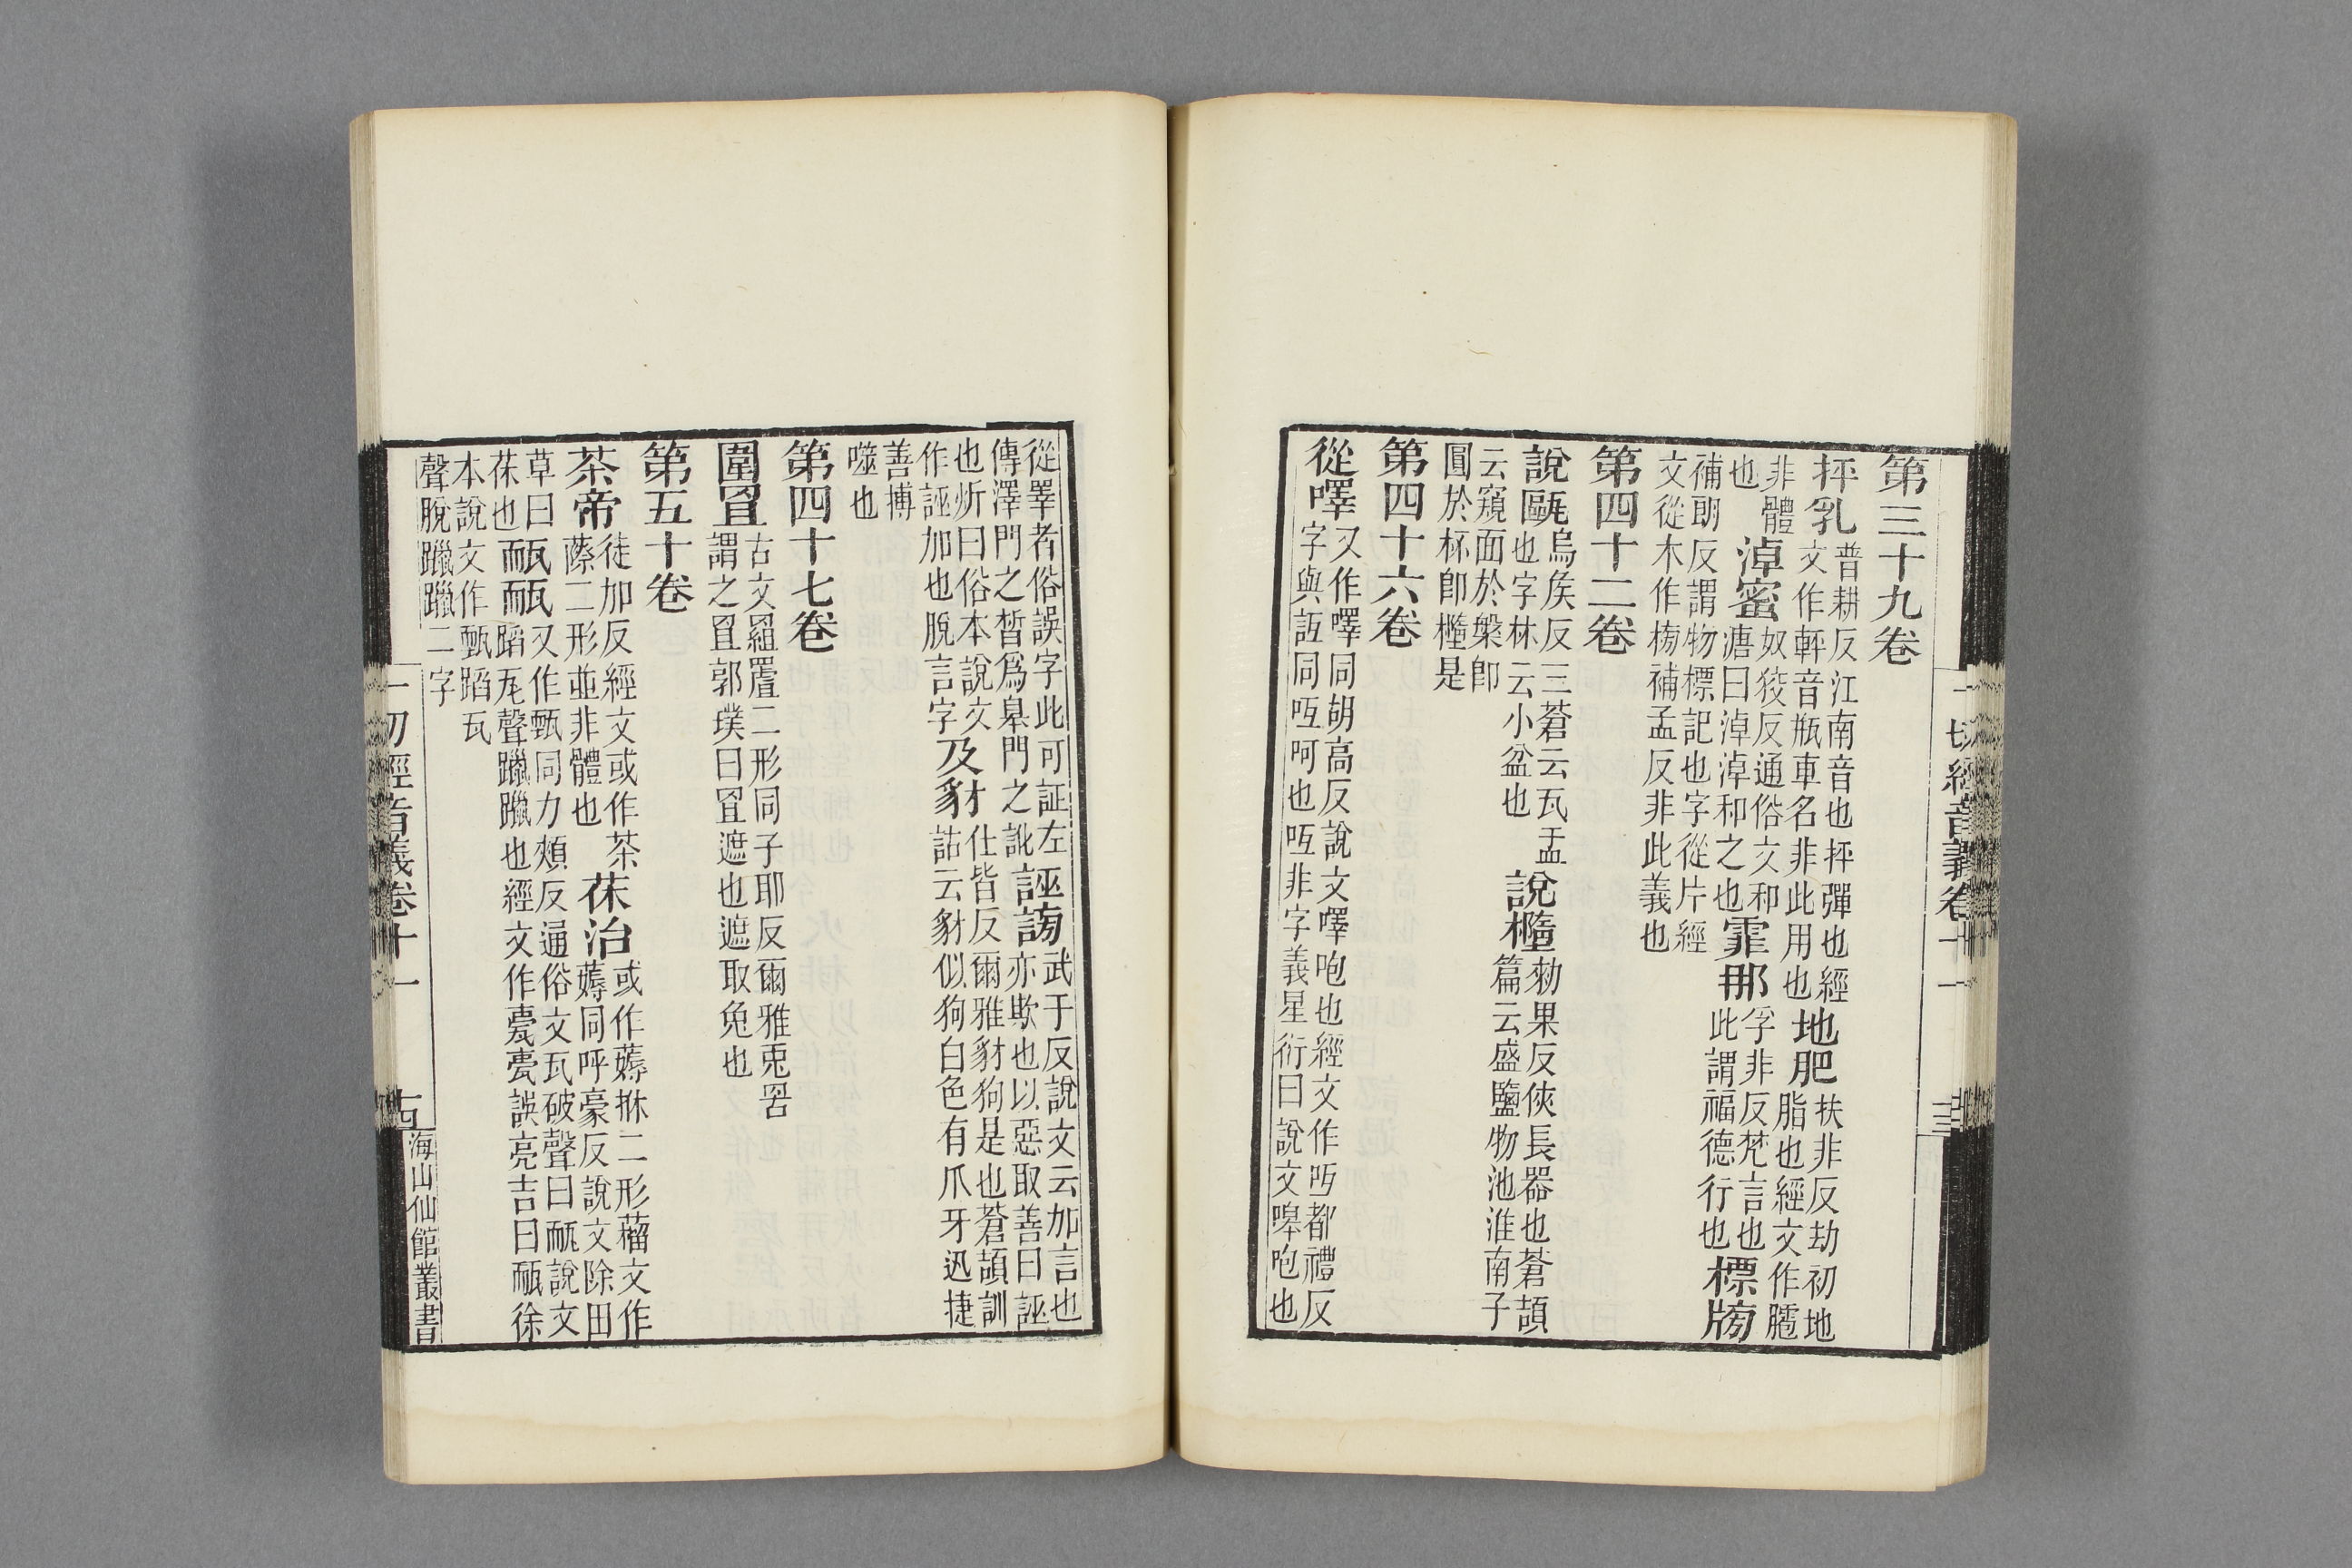 第三十九卷
抨乳
普耕反江南音也抨彈也經
文作軯音瓶車名非此用也
地肥
扶非反劫初地
脂也經文作𦠄
非體
也
淖蜜
奴狡反通俗文和
溏曰淖淖和之也
霏那
孚非反梵言也
此謂福德行也
標牓
補朗反謂物標記也字從片經
文從木作榜補孟反非此義也
第四十二卷
說甌
烏侯反三蒼云瓦盂
也字林云小盆也
說橢
勑果反俠長器也蒼頡
篇云盛鹽物池淮南子
云窺面於槃卽
圓於杯卽橢是
第四十六卷
從嘷
又作嘷同胡高反說文嘷咆也經文作呞都禮反
字與詆同呧呵也呧非字義星衍曰說文嘷咆也
一切經音義卷十一
十三
從睪者俗誤字此可証左
傳澤門之晳爲臯門之訛
誣謗
武于反說文云加言也
亦欺也以惡取善曰誣
也炘曰俗本說文
作誣加也脫言字
及豺
仕皆反爾雅豺狗是也蒼頡訓
詁云豺似狗白色有爪牙迅捷
善搏
噬也
第四十七卷
圍罝
古文罝䍖罝二形同子耶反爾雅兎罟
謂之罝郭璞曰罝遮也遮取兔也
第五十卷
茶帝
徒加反經文或作茶
蔡二形並非體也
茠治
或作薅抹二形䕌文作
薅同呼豪反說文除田
草曰
茠也
瓾瓾
又作甄同力頰反通俗文瓦破聲曰甋說文
蹈瓦聲躐躐也經文作㼾㼾誤亮吉曰甋徐
本說文作甄蹈瓦
聲脫躐躐二字
一切經音義卷十一
十四
海山仙館叢書